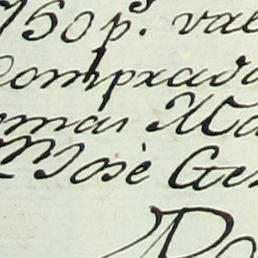 750 p.s val
comprado
omas Ma
Josè Ge